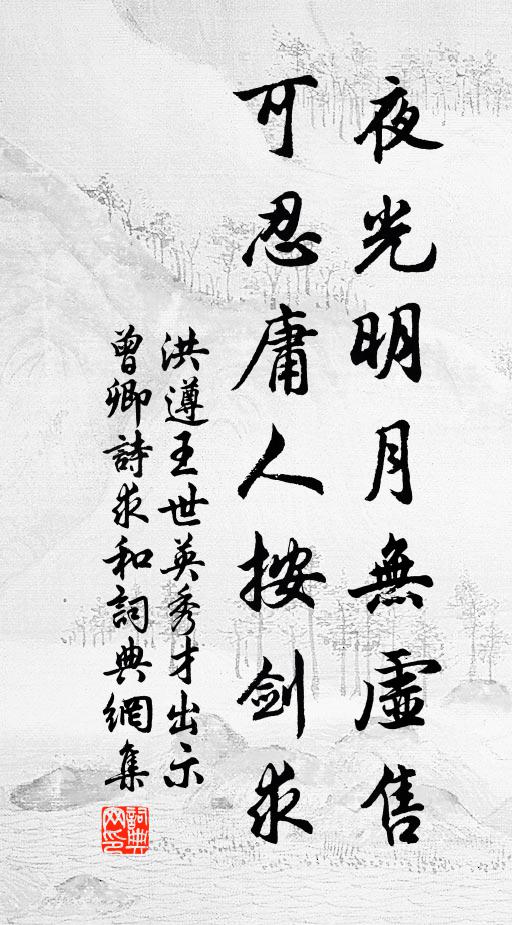 夜光明月無虛售
可忍庸人按劍求
洪遵王世英秀才出示
曾卿詩求和詞典網集
詞典
网印